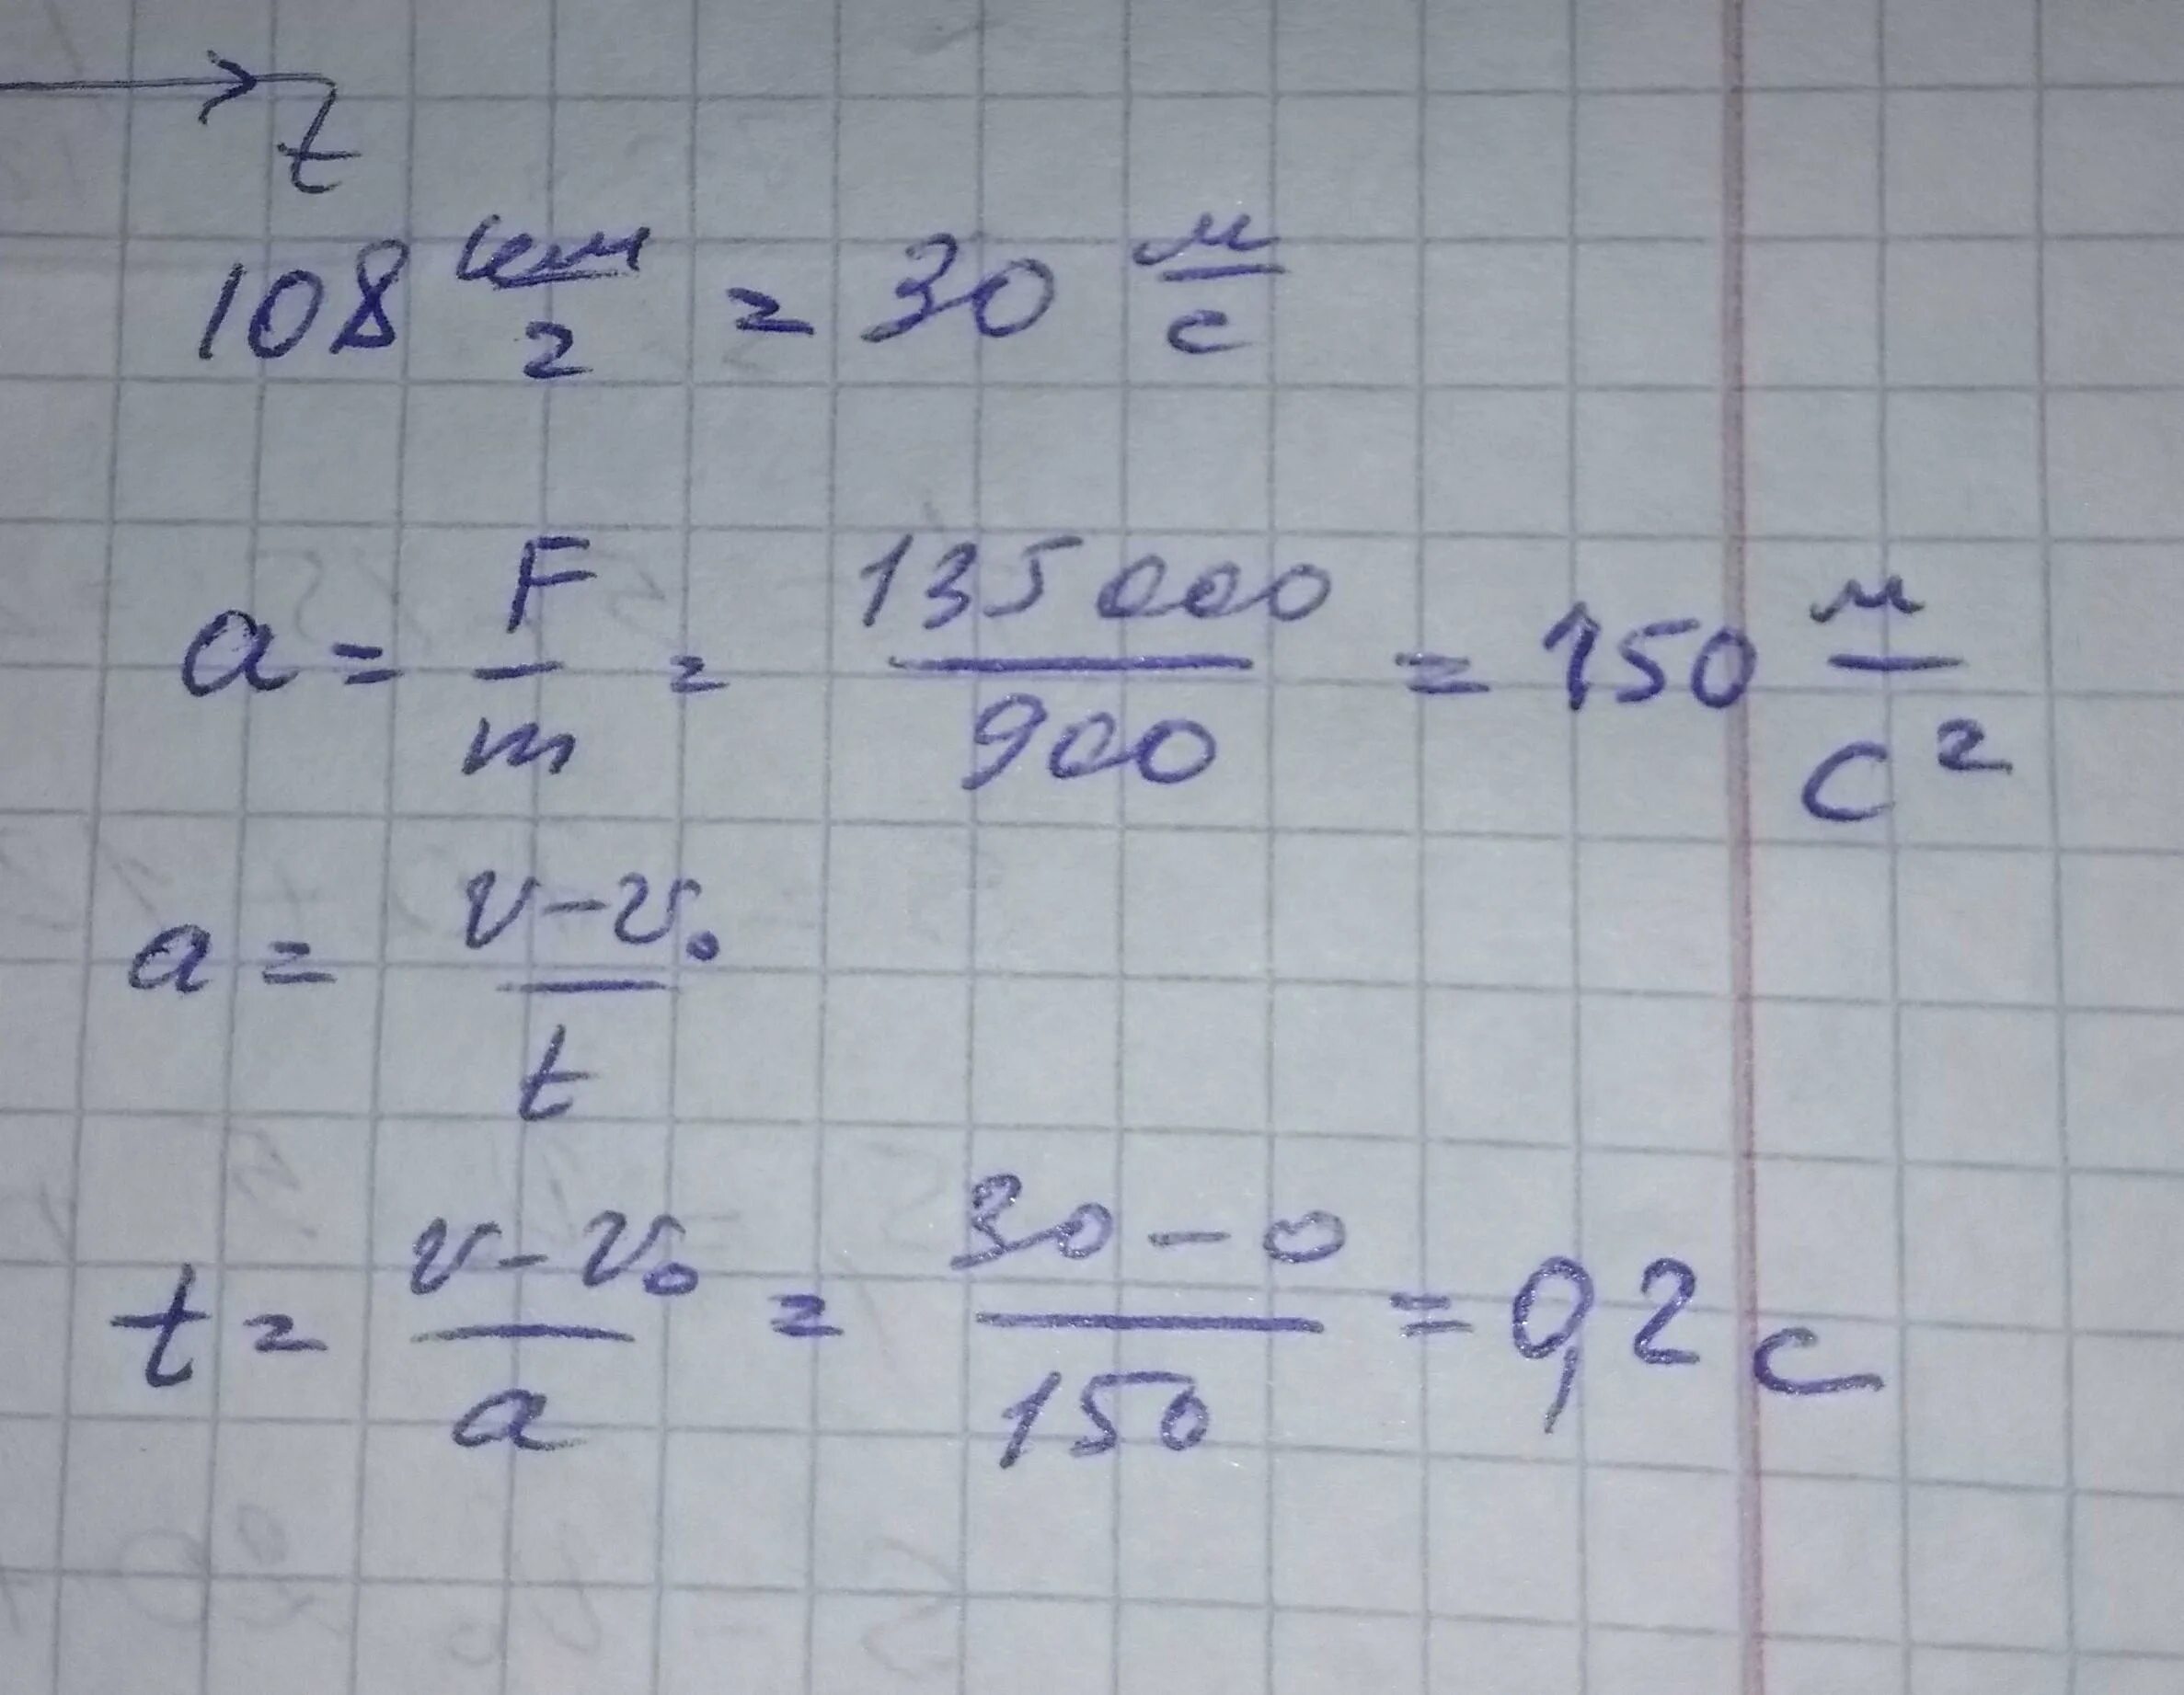 t
108 км/г = 30 м/с
a = F/m = 135000/900 = 150 м/с²
a = v-v₀/t
t = v-v₀/a = 30-0/150 = 0,2 с